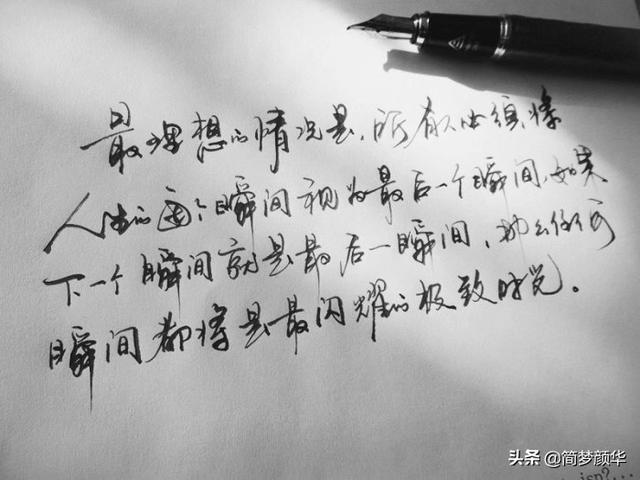 最理想的情况是，所有人必须将
人生的每个瞬间视为最后一个瞬间，如果
下一个瞬间就是最后一瞬间，那么任何
瞬间都将是最闪耀的极致时光。
头条 @简梦颜华
isn?...